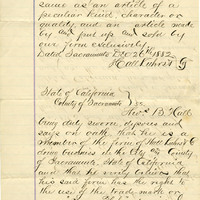 same as an article of a
peculiar kind, character or
quality, and an article made
by and put up and sold by
our firm exclusively
Dated Sacramento Dec 26th 1882
Hall
State of California
County of Sacramento } ss
B. Hall
being duly sworn, deposes and
says on oath that he is a
member of the firm of Hall
doing business in the City and County
of Sacramento, State of California
and that he verily believes that
his said firm has the right to
the use of the trade-mark